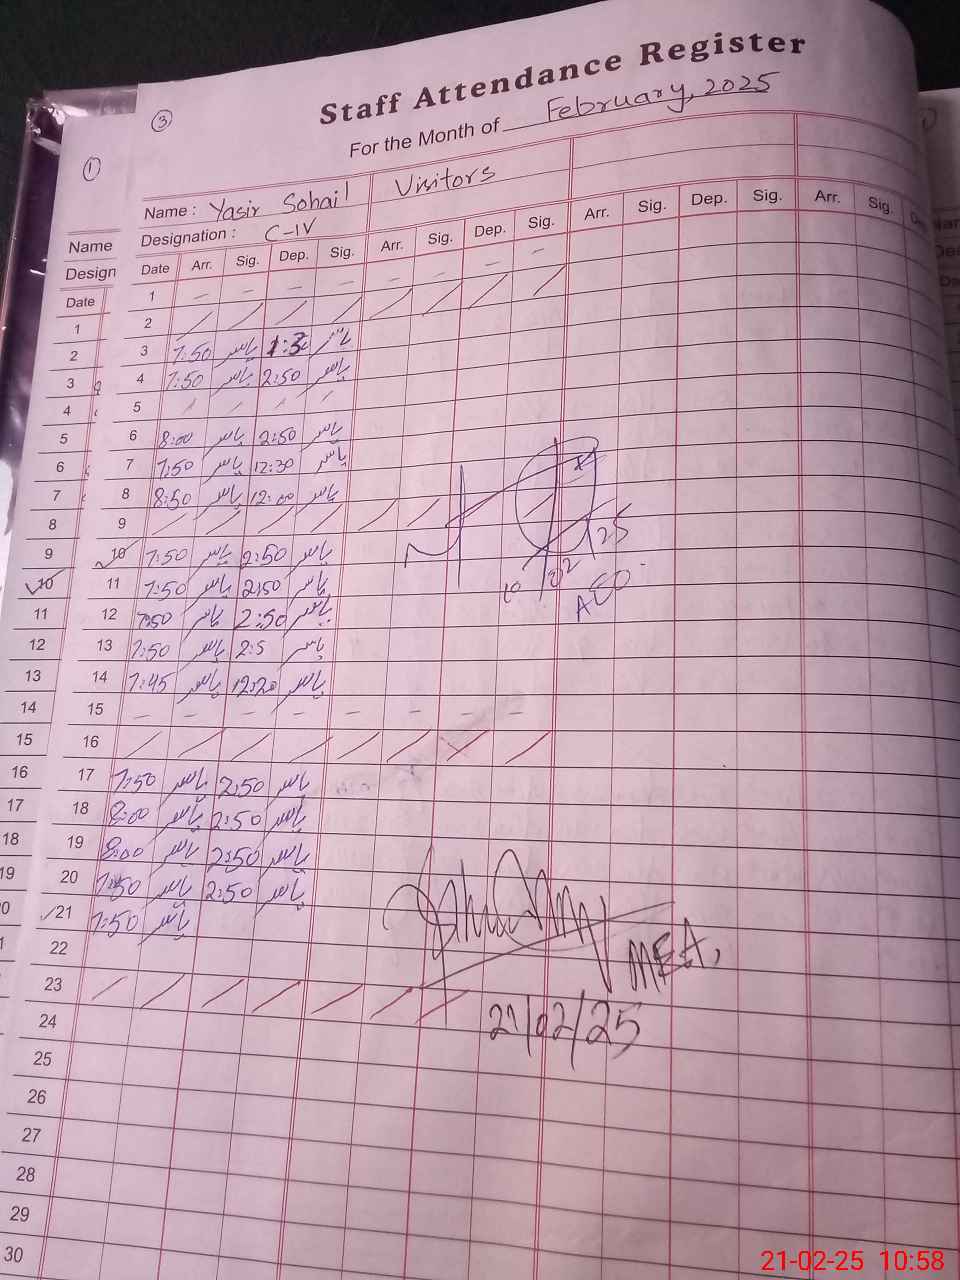 ③
Staff Attendance Register
For the Month of February, 2025
①
Name : Yasir Sohail Visitors
Designation : C-IV
Date Arr. Sig. Dep. Sig. Arr. Sig. Dep. Sig. Arr. Sig. Dep. Sig. Arr. Sig.
1 - - - - - - - -
2 / / / / / / / /
3 7:50 یاسر 1:3 یاسر
4 7:50 یاسر 2:50 یاسر
5 / / / /
6 8:00 یاسر 2:50 یاسر
7 7:50 یاسر 12:30 یاسر
8 8:50 یاسر 12:00 یاسر
9 / / / / / /
10 7:50 یاسر 2:50 یاسر
11 7:50 یاسر 2:50 یاسر
12 7:50 یاسر 2:50 یاسر
13 7:50 یاسر 2:5 یاسر
14 7:45 یاسر 12:20 یاسر
15 - - - - - - - -
16 / / / / / / / /
17 7:50 یاسر 2:50 یاسر
18 8:00 یاسر 2:50 یاسر
19 8:00 یاسر 2:50 یاسر
20 7:50 یاسر 2:50 یاسر
21 7:50 یاسر
22
23 / / / / / / /
24
25
26
27
28
29
30
10/02/25
AEO
MEA,
21/02/25
Name
Design
Date
1
2
3
4
5
6
7
8
9
10
11
12
13
14
15
16
17
18
19
21-02-25 10:58